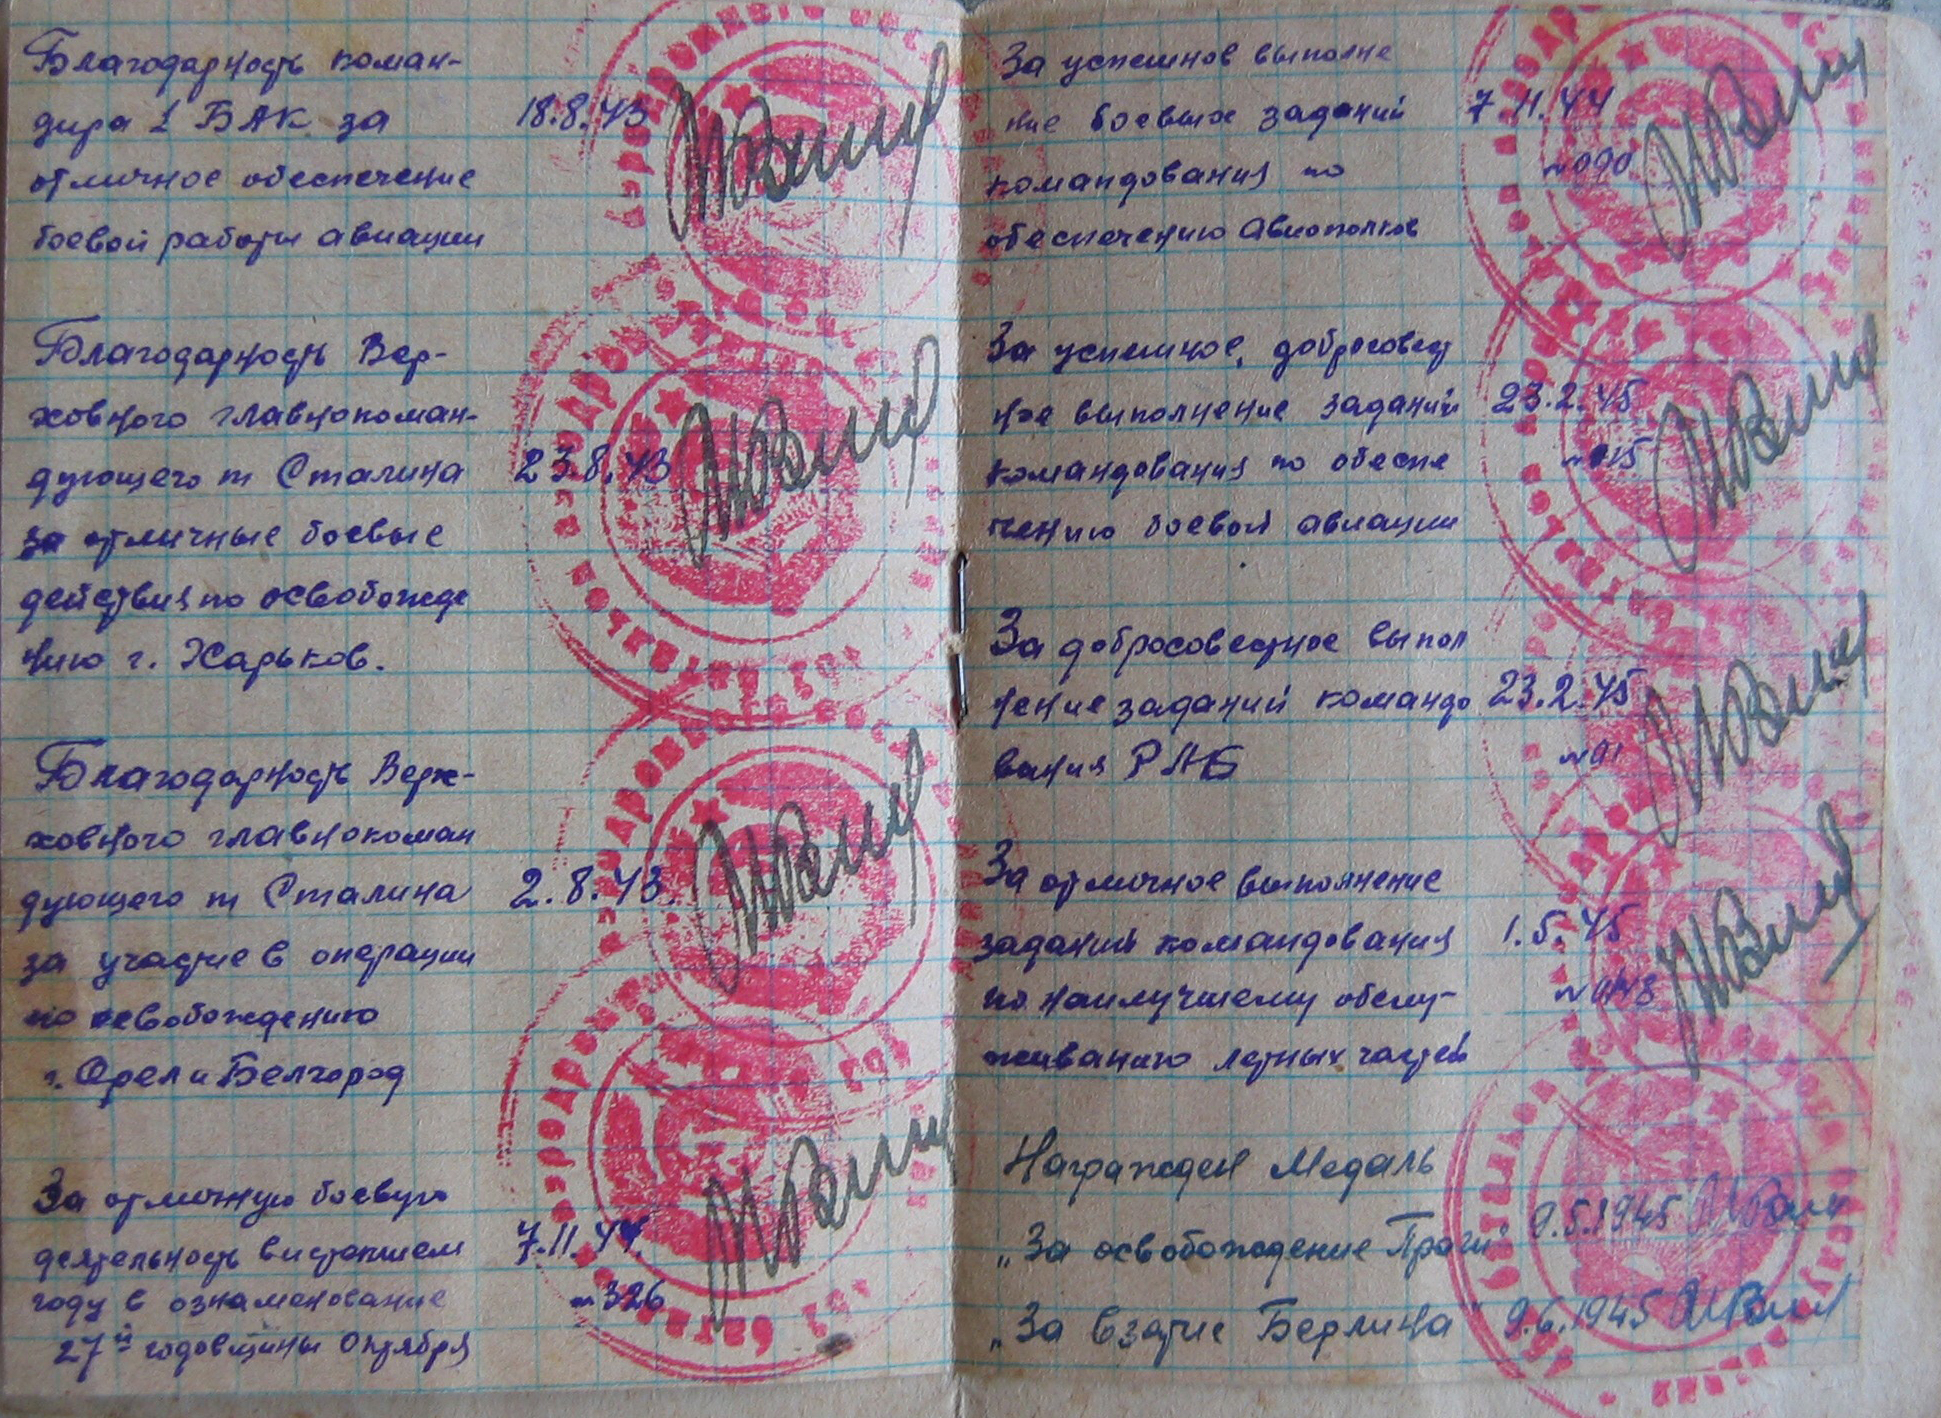 Благодарность коман-
дира 1 БАК за 18.8.43
отличное обеспечение
боевой работы авиации
Благодарность Вер-
ховного главнокоман-
дующего т Сталина 23.8.43
за отличные боевые
действия по освобожде
нию г. Харьков.
Благодарность Верх-
ховного главнокоман
дующего т Сталина 2.8.43.
за участие в операции
по освобождению
г. Орел и Белгород
За отличную боевую
деятельность в истекшем 7.11.44.
году в ознаменование №326
27й годовщины Октября
За успешное выполне
ние боевых заданий 7.11.44
командования по №090
обеспечению Авиополков
За успешное, добросовест
ное выполнение заданий 23.2.45
командования по обеспе №015
чению боевой авиации
За добросовестное выпол
нение заданий командо 23.2.45
вания РАБ №01
За отличное выполнение
заданий командования 1.5.45
по наилучшему обслу-
живанию летных частей
Награжден Медаль
„За освобождение Праги" 9.5.1945
„За взятие Берлина" 9.6.1945